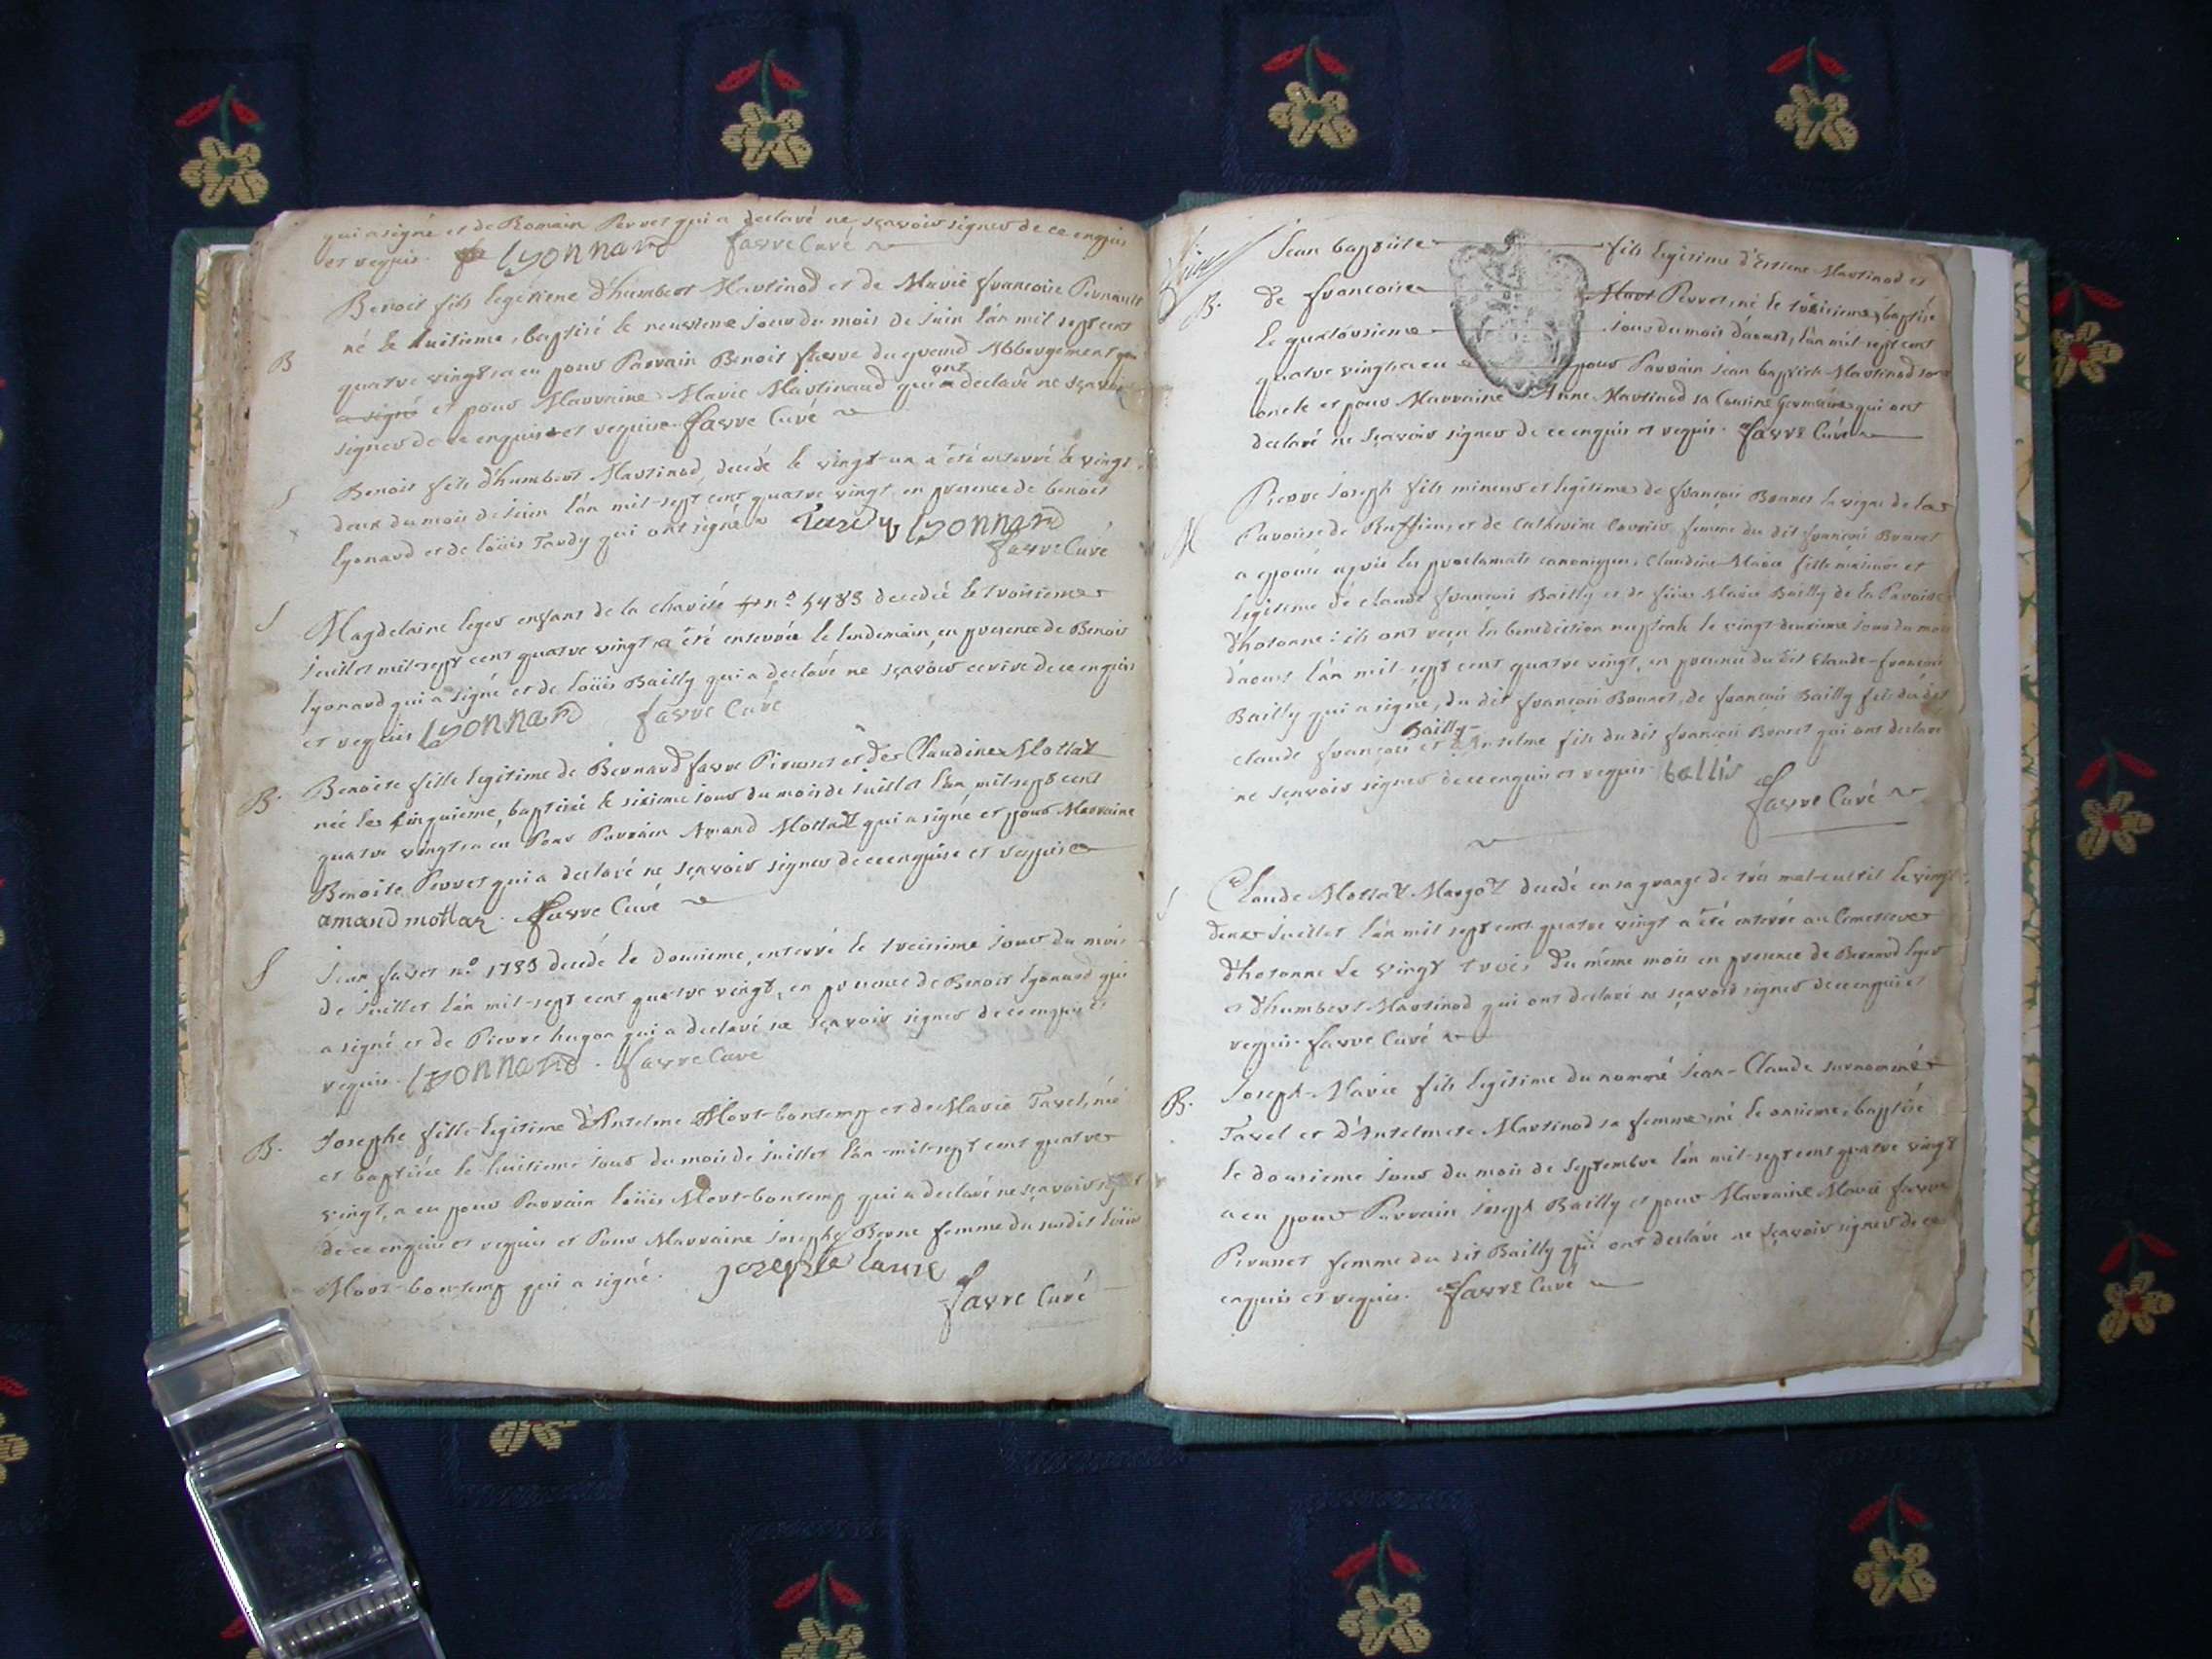 qui a signé et de Romain Perret qui a declaré ne sçavoir signer de ce enquis
et requis. Lyonnard favre Curé
Benoit fils legitime d'humbert Martinod et de Marie françoise Pernault
né le huitieme, baptisé le neuvieme jour du mois de juin l'an mil sept cent
B
quatre vingt, a eu pour Parrain Benoit favre du grand Abbergement qui
a signé et pour Marraine Marie Martinaud qui ont declaré ne sçavoir
signer de ce enquis et requis. favre Curé
S
Benoit fils d'humbert Martinod, decedé le vingt-un a été enterré le vingt
deux du mois de juin l'an mil-sept cent quatre vingt en presence de benoit
lyonard et de loüis Tardy qui ont signé Tardy Lyonnard
favre Curé
S
Magdelaine leger enfant de la charité n.° 5483 decedée le troisieme
juillet mil-sept cent quatre vingt a été enterrée le lendemain, en presence de Benoit
lyonard qui a signé et de loüis Bailly qui a declaré ne sçavoir ecrire de ce enquis
et requis Lyonnard favre Curé
B.
Benoite fille legitime de Bernard favre Pirunet et de Claudine Mottaz
née le cinquieme, baptisée le sixieme jour du mois de juillet l'an mil-sept cent
quatre vingt, a eu Pour Parrain Amand Mottaz qui a signé et pour Marraine
Benoite Perret qui a declaré ne sçavoir signer de ce enquise et requise
amand mottaz. favre Curé
S
Jean favet n.° 1783 decedé le douzieme, enterré le treizieme jour du mois
de juillet l'an mil-sept cent quatre vingt, en presence de Benoit lyonard qui
a signé et de Pierre hugon qui a declaré ne sçavoir signer de ce enquis et
requis. Lyonnard. favre Curé
B.
Josephe fille legitime d'Antelme Mort-bontemp et de Marie Tavel, née
et baptisée le huitieme jour du mois de juillet l'an-mil-sept cent quatre
vingt, a eu pour Parrain loüis Mort-bontemp qui a declaré ne sçavoir signer
de ce enquis et requis et Pour Marraine josephe Berne femme du susdit loüis
Mort-bontemp qui a signé.
favre Curé
Jean baptiste fils legitime d'Etiene Martinod et
B.
de françoise Mart Perret, né le treizieme, baptisé
le quatorzieme jour du mois d'aoust, l'an mil-sept cent
quatre vingt, a eu pour Parrain jean baptiste Martinod son
oncle et pour Marraine Anne Martinod sa Cousine Germaine qui ont
declaré ne sçavoir signer de ce enquis et requis. favre Curé
M
Pierre joseph fils mineur et legitime de françois Bonnet de la
Paroisse de Ruffieu, et de Catherine femme du dit françois Bonnet
a epousé après les proclamats canoniques, Claudine-Marie fille mineure et
legitime de claude françois Bailly et de Marie Bailly de la Paroisse
d'hotonne: ils ont reçu la benediction nuptiale le vingt-deuxieme jour du mois
d'aoust l'an mil-sept cent quatre vingt, en presence du dit Claude-françois
Bailly qui a signé, du dit françois Bonnet, de françois Bailly fils du dit
Bailly
claude françois et d'Antelme fils du dit françois Bonnet qui ont declaré
ne sçavoir signer de ce enquis et requis. bailli
favre Curé
S
Claude Mottaz Margot decedé en sa grange de tres mal-cuitil le vingt
deux juillet l'an mil sept cent quatre vingt a été enterré au Cimetiere
d'hotonne le vingt trois du même mois en presence de Bernard leger
et d'humbert Martinod qui ont declaré ne sçavoir signer de ce enquis et
requis. favre Curé
B.
Joseph-Marie fils legitime du nommé jean-Claude surnommé
Tavel et d'Antelmete Martinod sa femme, né le onzieme, baptisé
le douzieme jour du mois de septembre l'an mil-sept cent quatre vingt
a eu pour Parrain joseph Bailly et pour Marraine Marie favre
Pirunet femme du dit Bailly qui ont declaré ne sçavoir signer de ce
enquis et requis. favre Curé